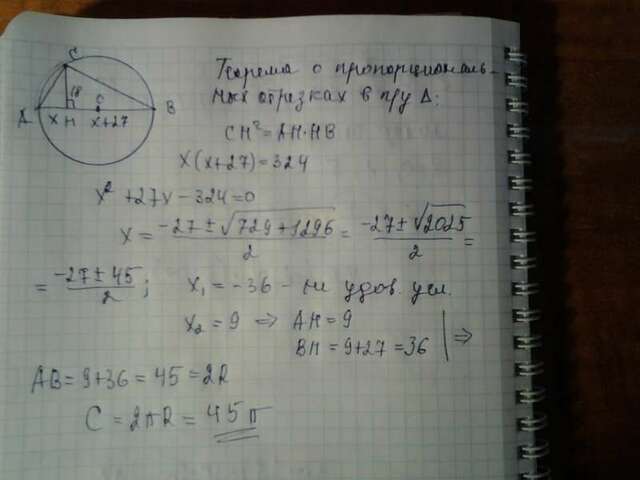 C
18
O
A
B
x
H
x+27
Теорема о пропорциональ-
ных отрезках в п/у Δ:
CH²=AH·HB
x(x+27)=324
x²+27x-324=0
x = (-27±√(729+1296))/2 = (-27±√2025)/2 =
= (-27±45)/2; x₁=-36 - не удов. усл.
x₂=9 ⇒ AH=9
BH=9+27=36 | ⇒
AB=9+36=45=2R
C=2πR=45π